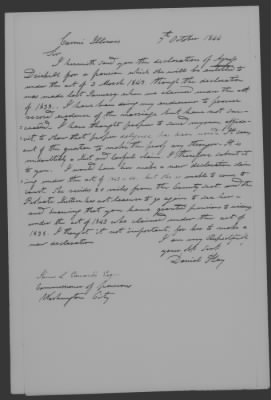 Carmi Illinois 7th October 1844
Sir
I herewith send you the declaration of
for a pension which she will be entitled to
under the act of 3 March 1843. though the declaration
was made last January, when we claimed under the act
of 1838. I have been using my endeavors to procure
record evidence of the marriage but have not suc-
ceeded. I have thought proper to send my own affida-
vit to show that proper diligence has been used
of the quarter to make the proof any stronger. It is
undoubtedly a just and lawful claim. I therefore submit it
to you. I would have her made a new declaration com-
ing under the act of but she is unable to come to
court. She resides 20 miles from the County seat and the
Probate Justice has not to go again to see her
and knowing that you have granted pensions to widows
under the act of 1843 who claimed under the act of
1838. I thought it not important for her to make a
new declaration
I am very Respectfully
your Ob Svt
Daniel Hay
James L Edwards Esq
Commissioner of pensions
Washington City